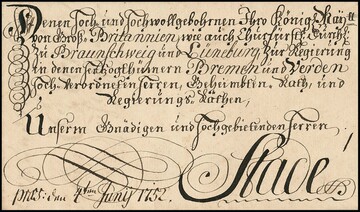 Denen Hoch und Hochwollgebohrnen Ihro Königl. Maytt
von Groß-Britannien, wie auch Churfürstl. Durchl.
zu Braunschweig und Lüneburg zur Regierung
in denen Hertzogthümern Bremen und Verden
Hoch-Verordneten Herren, Geheimbten Rath, und
Regierungs Räthen,
Unsern Gnädigen und Hochgebietenden Herren
Stade
den 4ten Juny 1752.